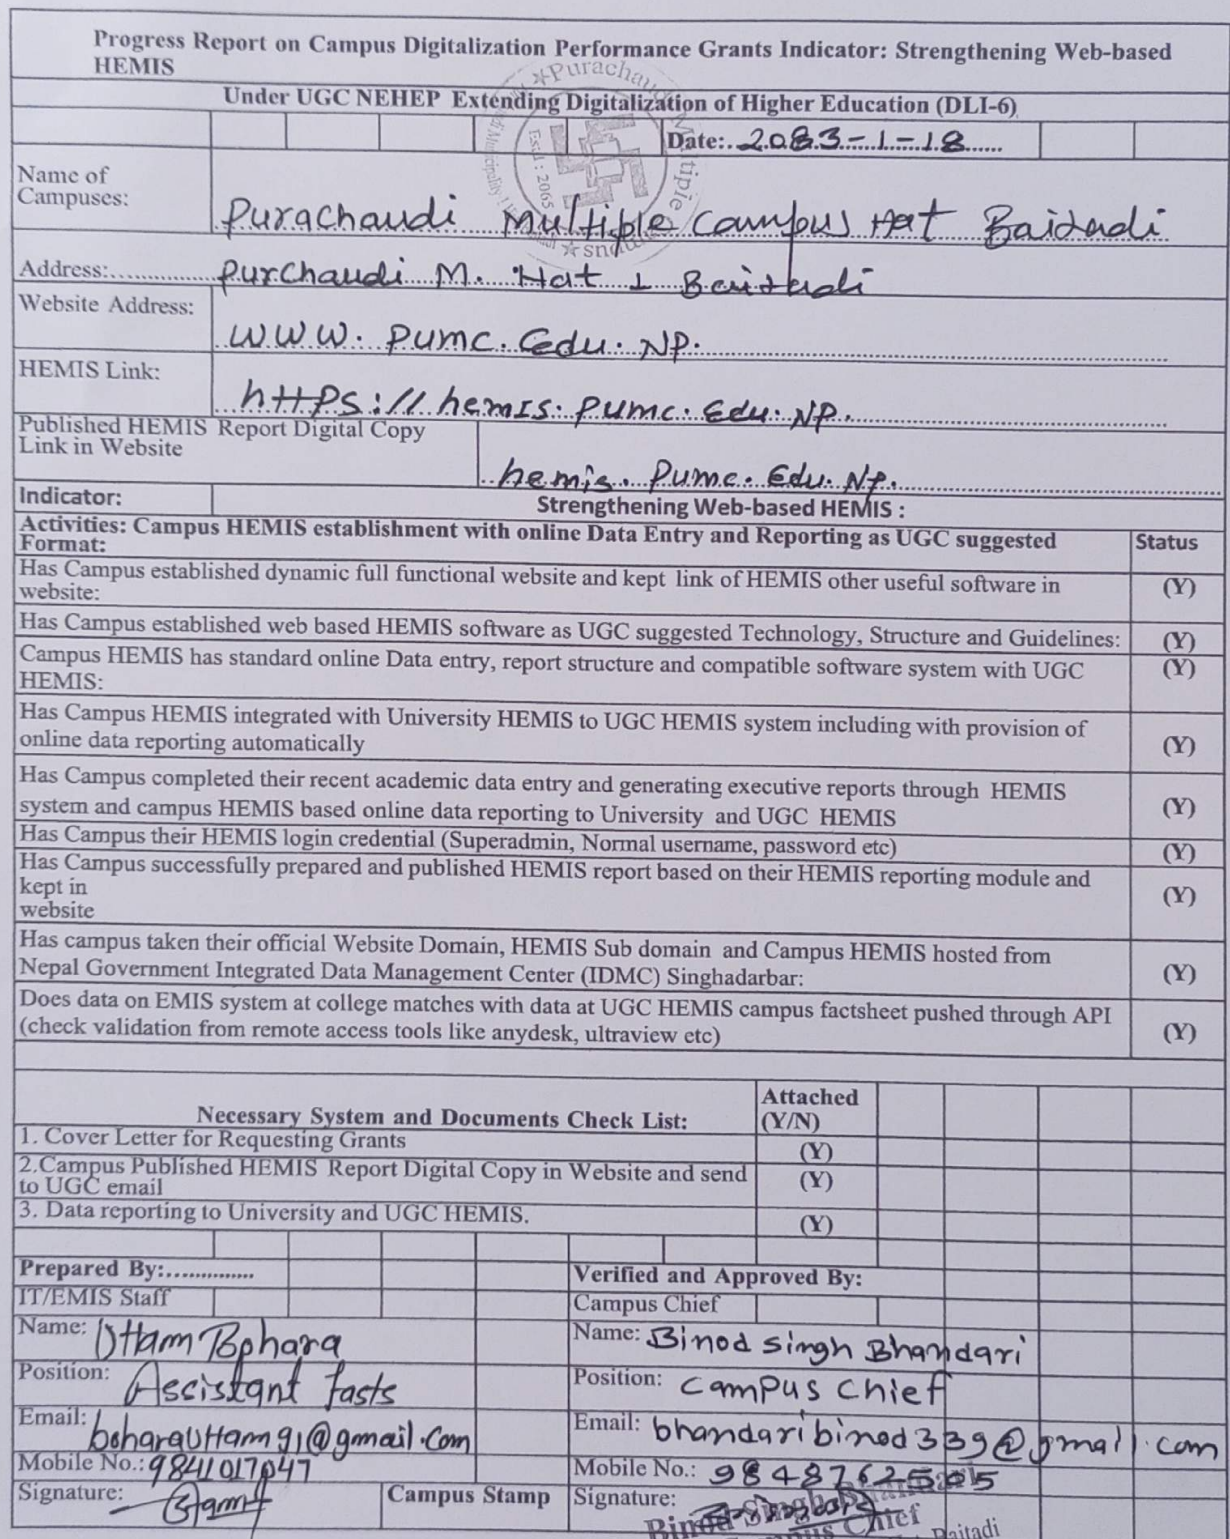 Progress Report on Campus Digitalization Performance Grants Indicator: Strengthening Web-based
HEMIS
Under UGC NEHEP Extending Digitalization of Higher Education (DLI-6)
Date: 2083-1-18
Name of
Campuses:
Purachaudi Multiple Campus Hat Baitadi
Address: Purchaudi M. Hat 1 Baitadi
Website Address:
www.pumc.Edu.Np.
HEMIS Link:
https://hemis.pumc.Edu.Np.
Published HEMIS Report Digital Copy
Link in Website
hemis.pumc.Edu.Np.
Indicator: Strengthening Web-based HEMIS :
Activities: Campus HEMIS establishment with online Data Entry and Reporting as UGC suggested
Format:
Status
Has Campus established dynamic full functional website and kept link of HEMIS other useful software in
website:
(Y)
Has Campus established web based HEMIS software as UGC suggested Technology, Structure and Guidelines: (Y)
Campus HEMIS has standard online Data entry, report structure and compatible software system with UGC
HEMIS:
(Y)
Has Campus HEMIS integrated with University HEMIS to UGC HEMIS system including with provision of
online data reporting automatically
(Y)
Has Campus completed their recent academic data entry and generating executive reports through HEMIS
system and campus HEMIS based online data reporting to University and UGC HEMIS
(Y)
Has Campus their HEMIS login credential (Superadmin, Normal username, password etc) (Y)
Has Campus successfully prepared and published HEMIS report based on their HEMIS reporting module and
kept in
website
(Y)
Has campus taken their official Website Domain, HEMIS Sub domain and Campus HEMIS hosted from
Nepal Government Integrated Data Management Center (IDMC) Singhadarbar:
(Y)
Does data on EMIS system at college matches with data at UGC HEMIS campus factsheet pushed through API
(check validation from remote access tools like anydesk, ultraview etc)
(Y)
Necessary System and Documents Check List:
Attached
(Y/N)
1. Cover Letter for Requesting Grants (Y)
2.Campus Published HEMIS Report Digital Copy in Website and send
to UGC email
(Y)
3. Data reporting to University and UGC HEMIS. (Y)
Prepared By:.............. Verified and Approved By:
IT/EMIS Staff Campus Chief
Name: Uttam Bohara Name: Binod Singh Bhandari
Position: Assistant fasts Position: Campus Chief
Email: boharauttam91@gmail.com Email: bhandaribinod339@gmail.com
Mobile No.: 9841017047 Mobile No.:
Signature: Campus Stamp Signature:
Binod Singh Bhandari
Campus Chief
Baitadi